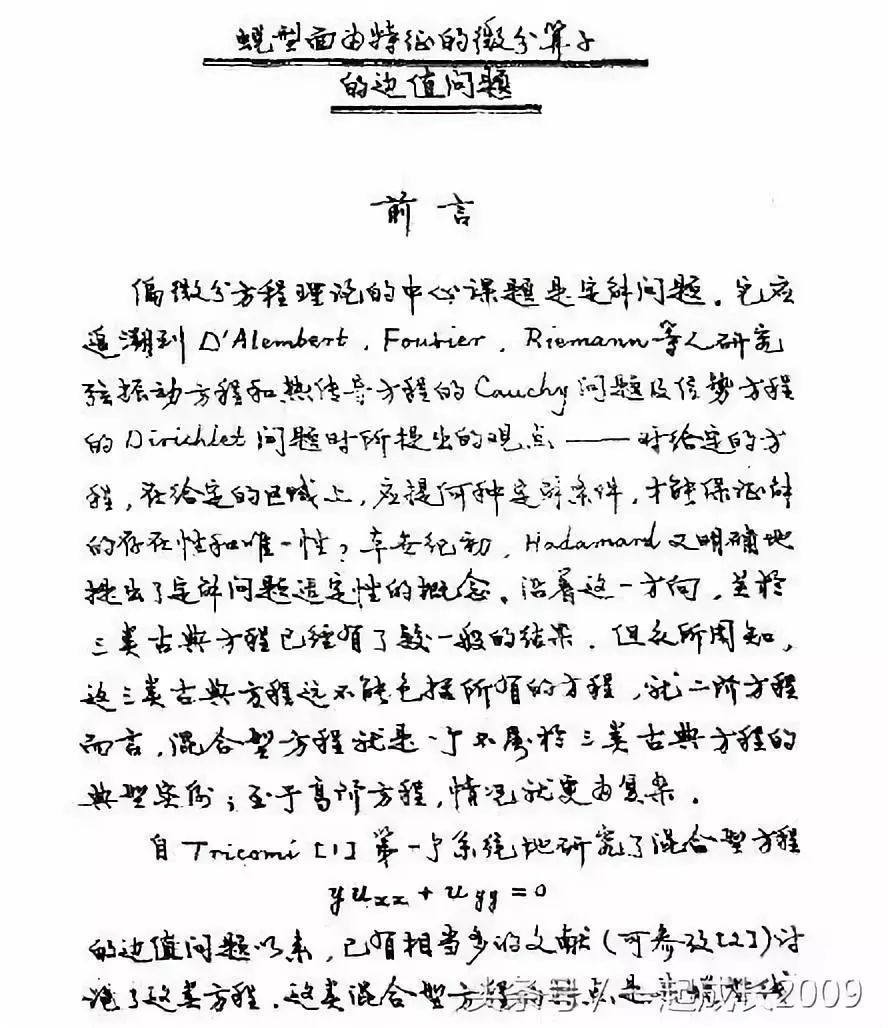 蜕型面为特征的微分算子
的边值问题
前言
偏微分方程理论的中心课题是定解问题。它应
追溯到 D'Alembert, Fourier, Riemann 等人研究
弦振动方程和热传导方程的 Cauchy 问题及位势方程
的 Dirichlet 问题时所提出的观点——对给定的方
程,在给定的区域上,应提何种定解条件,才能保证解
的存在性和唯一性?本世纪初,Hadamard 又明确地
提出了定解问题适定性的概念。沿着这一方向,关於
三类古典方程已经有了较一般的结果。但众所周知,
这三类古典方程远不能包括所有的方程,就二阶方程
而言,混合型方程就是一个不属於三类古典方程的
典型实例;至于高阶方程,情况就更为复杂。
自 Tricomi [1] 第一个系统地研究了混合型方程
yu_xx + u_yy = 0
的边值问题以来,已有相当多的文献(可参攷[2])讨
论了这类方程。这类混合型方程的特点是
头条号 / 一起成长2009